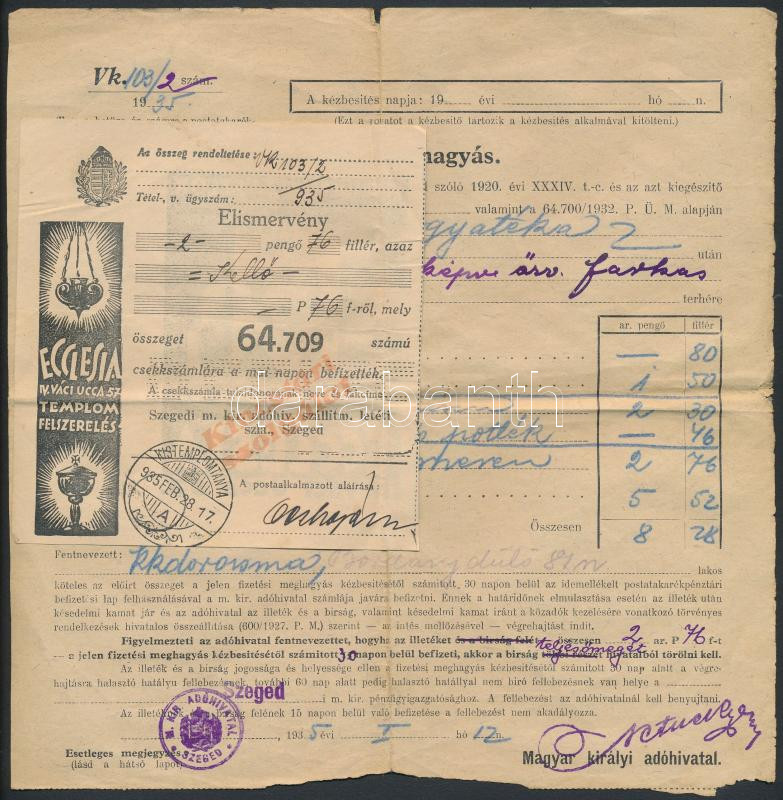 Vk. 103/2 szám.
1935.
A kézbesités napja: 19 évi hó n.
(Ezt a rovatot a kézbesitő tartozik a kézbesités alkalmával kitölteni.)
hagyás.
szóló 1920. évi XXXIV. t.-c. és az azt kiegészítő
valamint a 64.700/1932. P. Ü. M. alapján
gyatéka után
özv. farkas
terhére
ar. pengő fillér
— 80
1 50
2 30
— 46
2 76
5 52
Összesen 8 28
Az összeg rendeltetése: Vk 103/2
Tétel-, v. ügyszám: 935
Elismervény
-2- pengő 76 fillér, azaz
= Kettő =
P 76 f-ről, mely
összeget 64.709 számú
csekkszámlára a mai napon befizették.
A csekkszámla tulajdonosának neve és lakcíme
Szegedi m. kir. adóhiv. szillitm. letéti
szla. Szeged
A postaalkalmazott aláirása:
ECCLESIA
IV. VÁCI UCCA 57
TEMPLOM
FELSZERELÉS
KISTEMPLOMTANYA
935 FEB. 28. 17.
A
darabanth
Fentnevezett: Kkdorozsma, lakos
köteles az előirt összeget a jelen fizetési meghagyás kézbesitésétől számitott, 30 napon belül az idemellékelt postatakarékpénztári
befizetési lap felhasználásával a m. kir. adóhivatal számlája javára befizetni. Ennek a határidőnek elmulasztása esetén az illeték után
késedelmi kamat jár és az adóhivatal az illeték és a birság, valamint késedelmi kamat iránt a közadók kezelésére vonatkozó törvényes
rendelkezések hivatalos összeállitása (600/1927. P. M.) szerint — az intés mellőzésével — végrehajtást indit.
Figyelmezteti az adóhivatal fentnevezettet, hogyha az illetéket és a birság felét összesen 2 ar. P 76 f-t
a jelen fizetési meghagyás kézbesitésétől számitott 30 napon belül befizeti, akkor a birság teljesömegét hivatalból törölni kell.
Az illeték és a birság jogossága és helyessége ellen a jelen fizetési meghagyás kézbesitésétől számitott 30 nap alatt a végre-
hajtásra halasztó hatályu fellebbezésnek, további 60 nap alatt pedig halasztó hatállyal nem biró fellebbezésnek van helye a
Szeged i m. kir. pénzügyigazgatósághoz. A fellebbezést az adóhivatalnál kell benyujtani.
Az illetéknek és a birság felének 15 napon belül való befizetése a fellebbezést nem akadályozza.
, 1935 évi I hó 12 n.
M. KIR. ADÓHIVATAL
SZEGED
Esetleges megjegyzés
(lásd a hátsó lapot)
Magyar királyi adóhivatal.